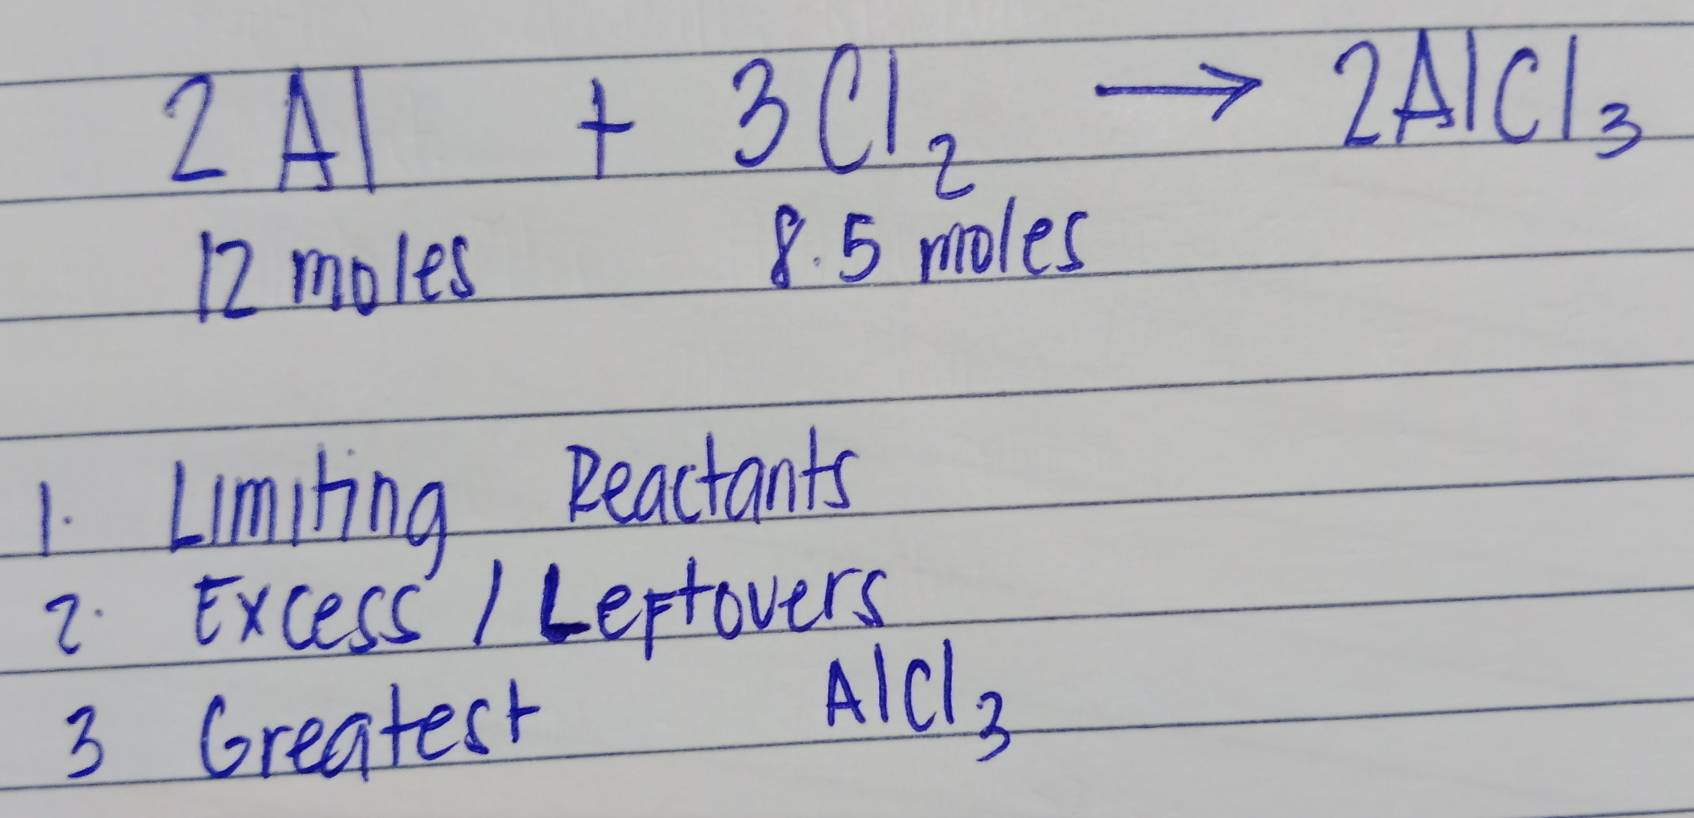 2Al + 3Cl₂ → 2AlCl₃
12 moles 8.5 moles
1. Limiting Reactants
2. Excess / Leftovers
3 Greatest AlCl₃